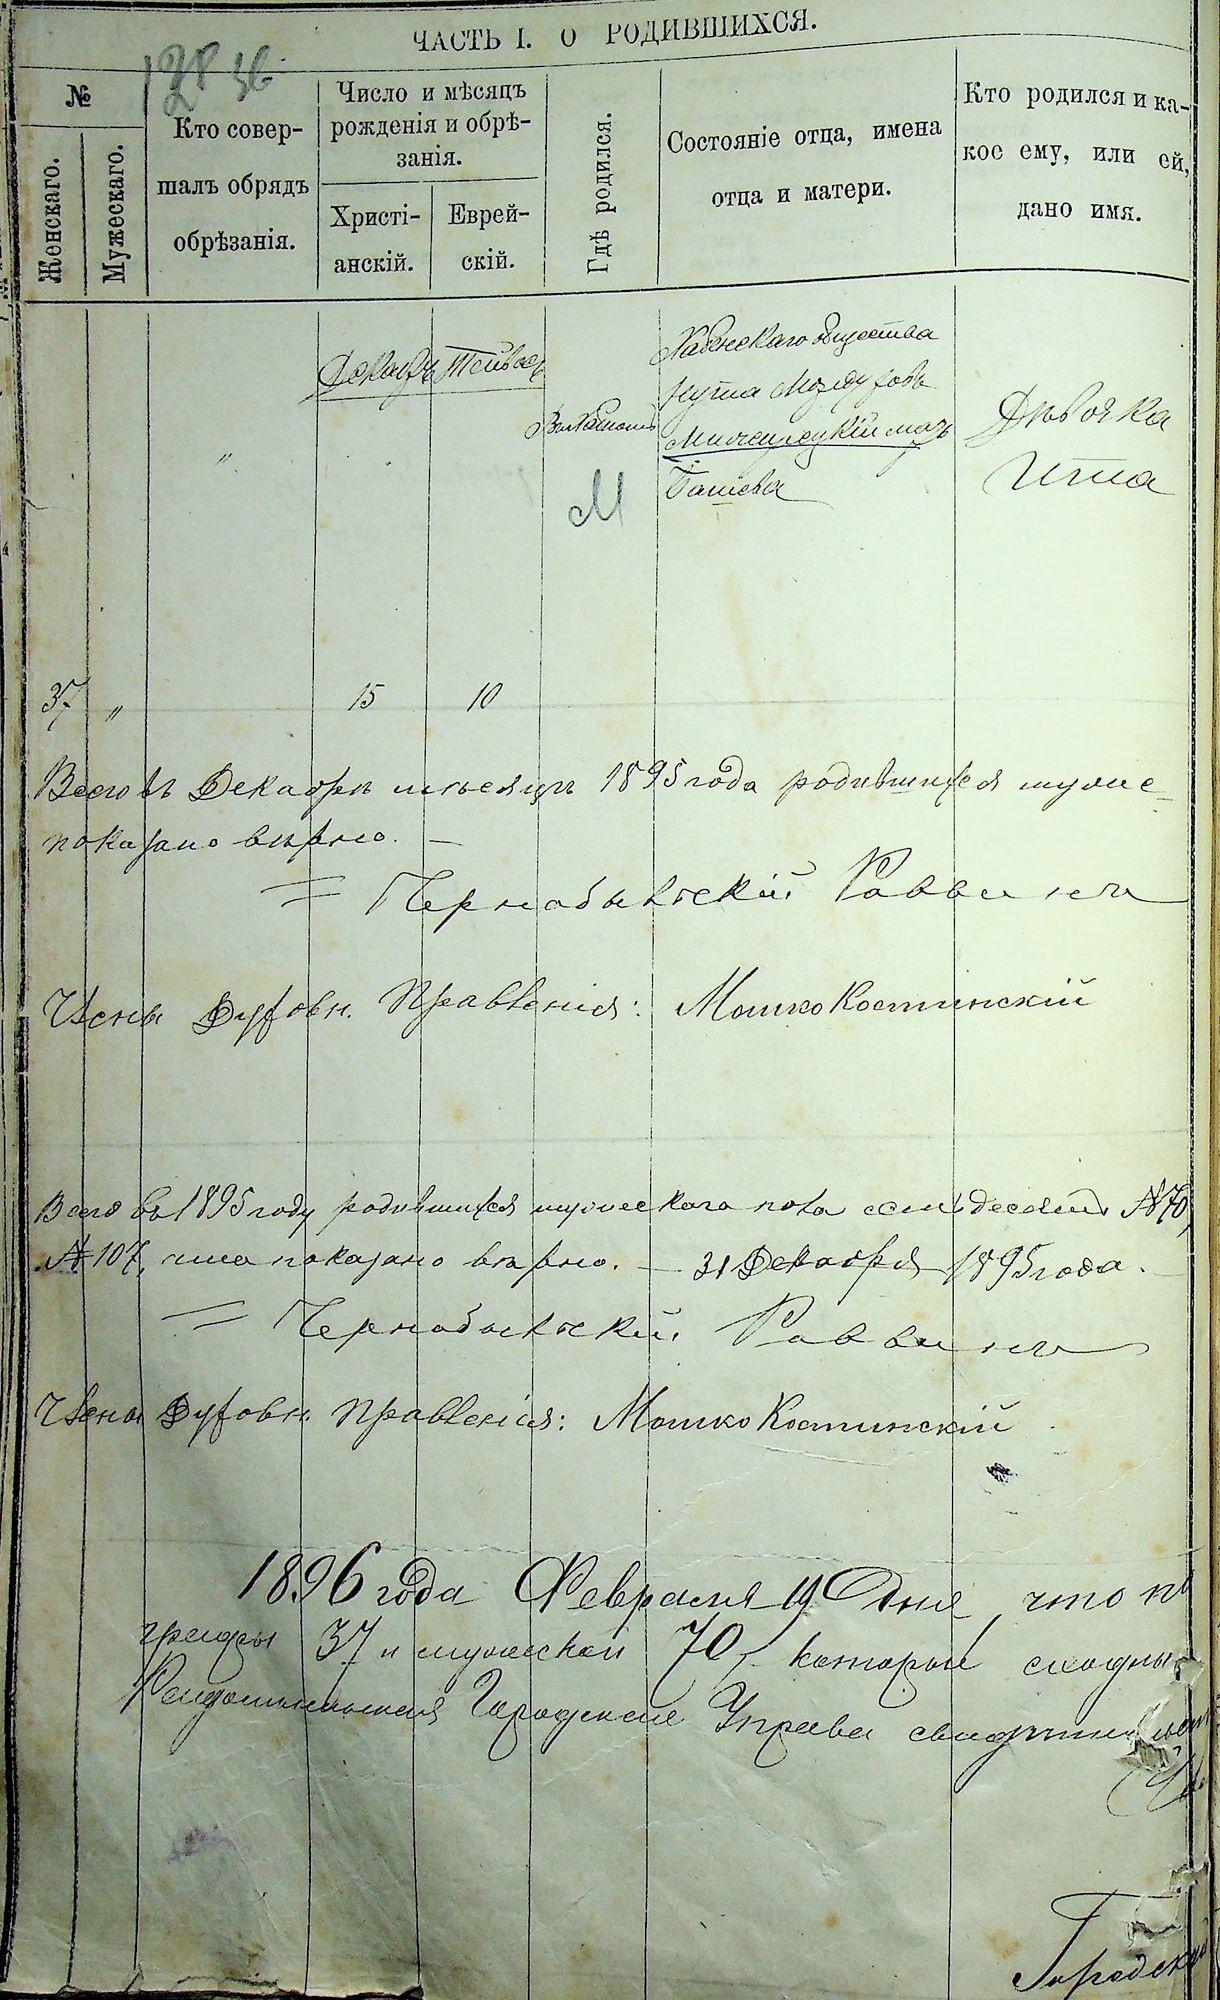 ЧАСТЬ I. О РОДИВШИХСЯ.
№
Женскаго.
Мужескаго.
Кто совер-
шалъ обрядъ
обрѣзанія.
Число и мѣсяцъ
рожденія и обрѣ-
занія.
Христі-
анскій.
Еврей-
скій.
Гдѣ родился.
Состояніе отца, имена
отца и матери.
Кто родился и ка-
кое ему, или ей,
дано имя.
Декабрь Тейвесъ
Хабенскаго общества
Нута
мать
М
Дѣвочка
Ита
37 " 15 10
Всего въ Декабрѣ мѣсяцѣ 1895 года родившихся муже-
показано вѣрно. —
Чернобыльскій Раввинъ
Члены Духовн. Правленія: Мошко Костинскій
Всего въ 1895 году родившихся мужескаго пола семьдесятъ №70,
№ 107, показано вѣрно. — 31 Декабря 1895 года. —
Чернобыльскій Раввинъ
Члены Духовн. Правленія: Мошко Костинскій
1896 года Февраля 19 Дня, что
графы 37 и мужской 70, которые
Радомысльская Городская Управа
Городской